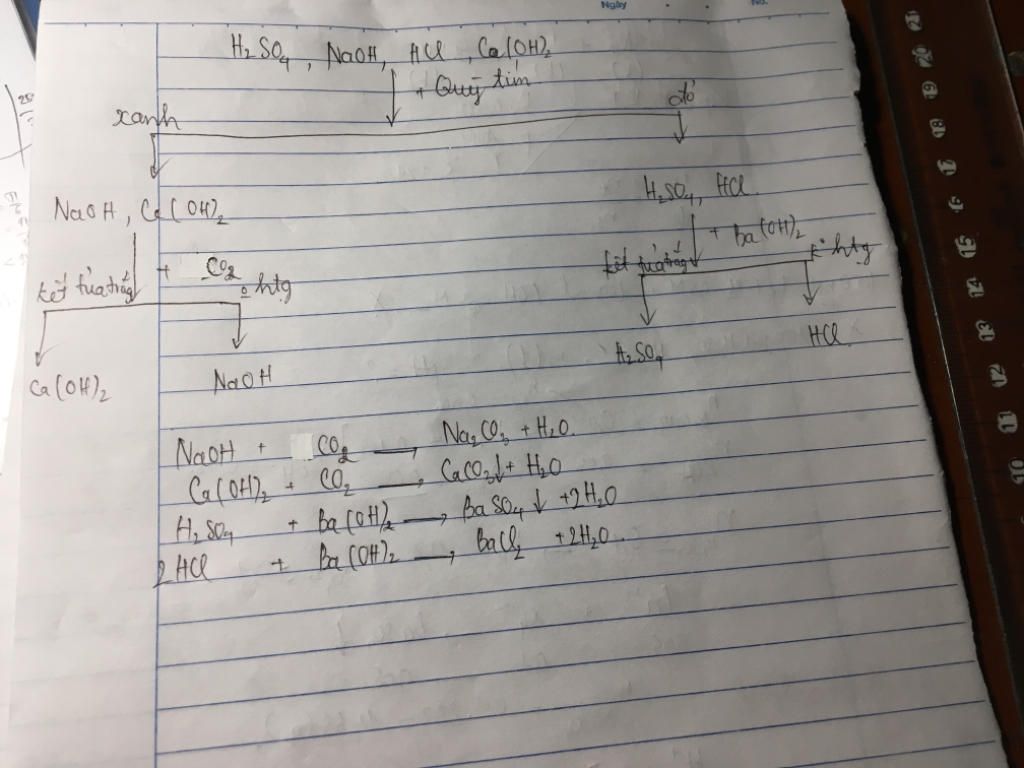 Ngày
No.
H₂SO₄, NaOH, HCl, Ca(OH)₂
+ Quỳ tím
xanh
đỏ
NaOH, Ca(OH)₂
H₂SO₄, HCl
+ Ba(OH)₂
kết tủa trắng
+ CO₂
k° htg
kết tủa trắng
k° htg
Ca(OH)₂
NaOH
H₂SO₄
HCl
NaOH + CO₂ → Na₂CO₃ + H₂O.
Ca(OH)₂ + CO₂ → CaCO₃↓ + H₂O
H₂SO₄ + Ba(OH)₂ → BaSO₄↓ + 2H₂O
2HCl + Ba(OH)₂ → BaCl₂ + 2H₂O.
21
20
19
18
17
16
15
14
13
12
11
10